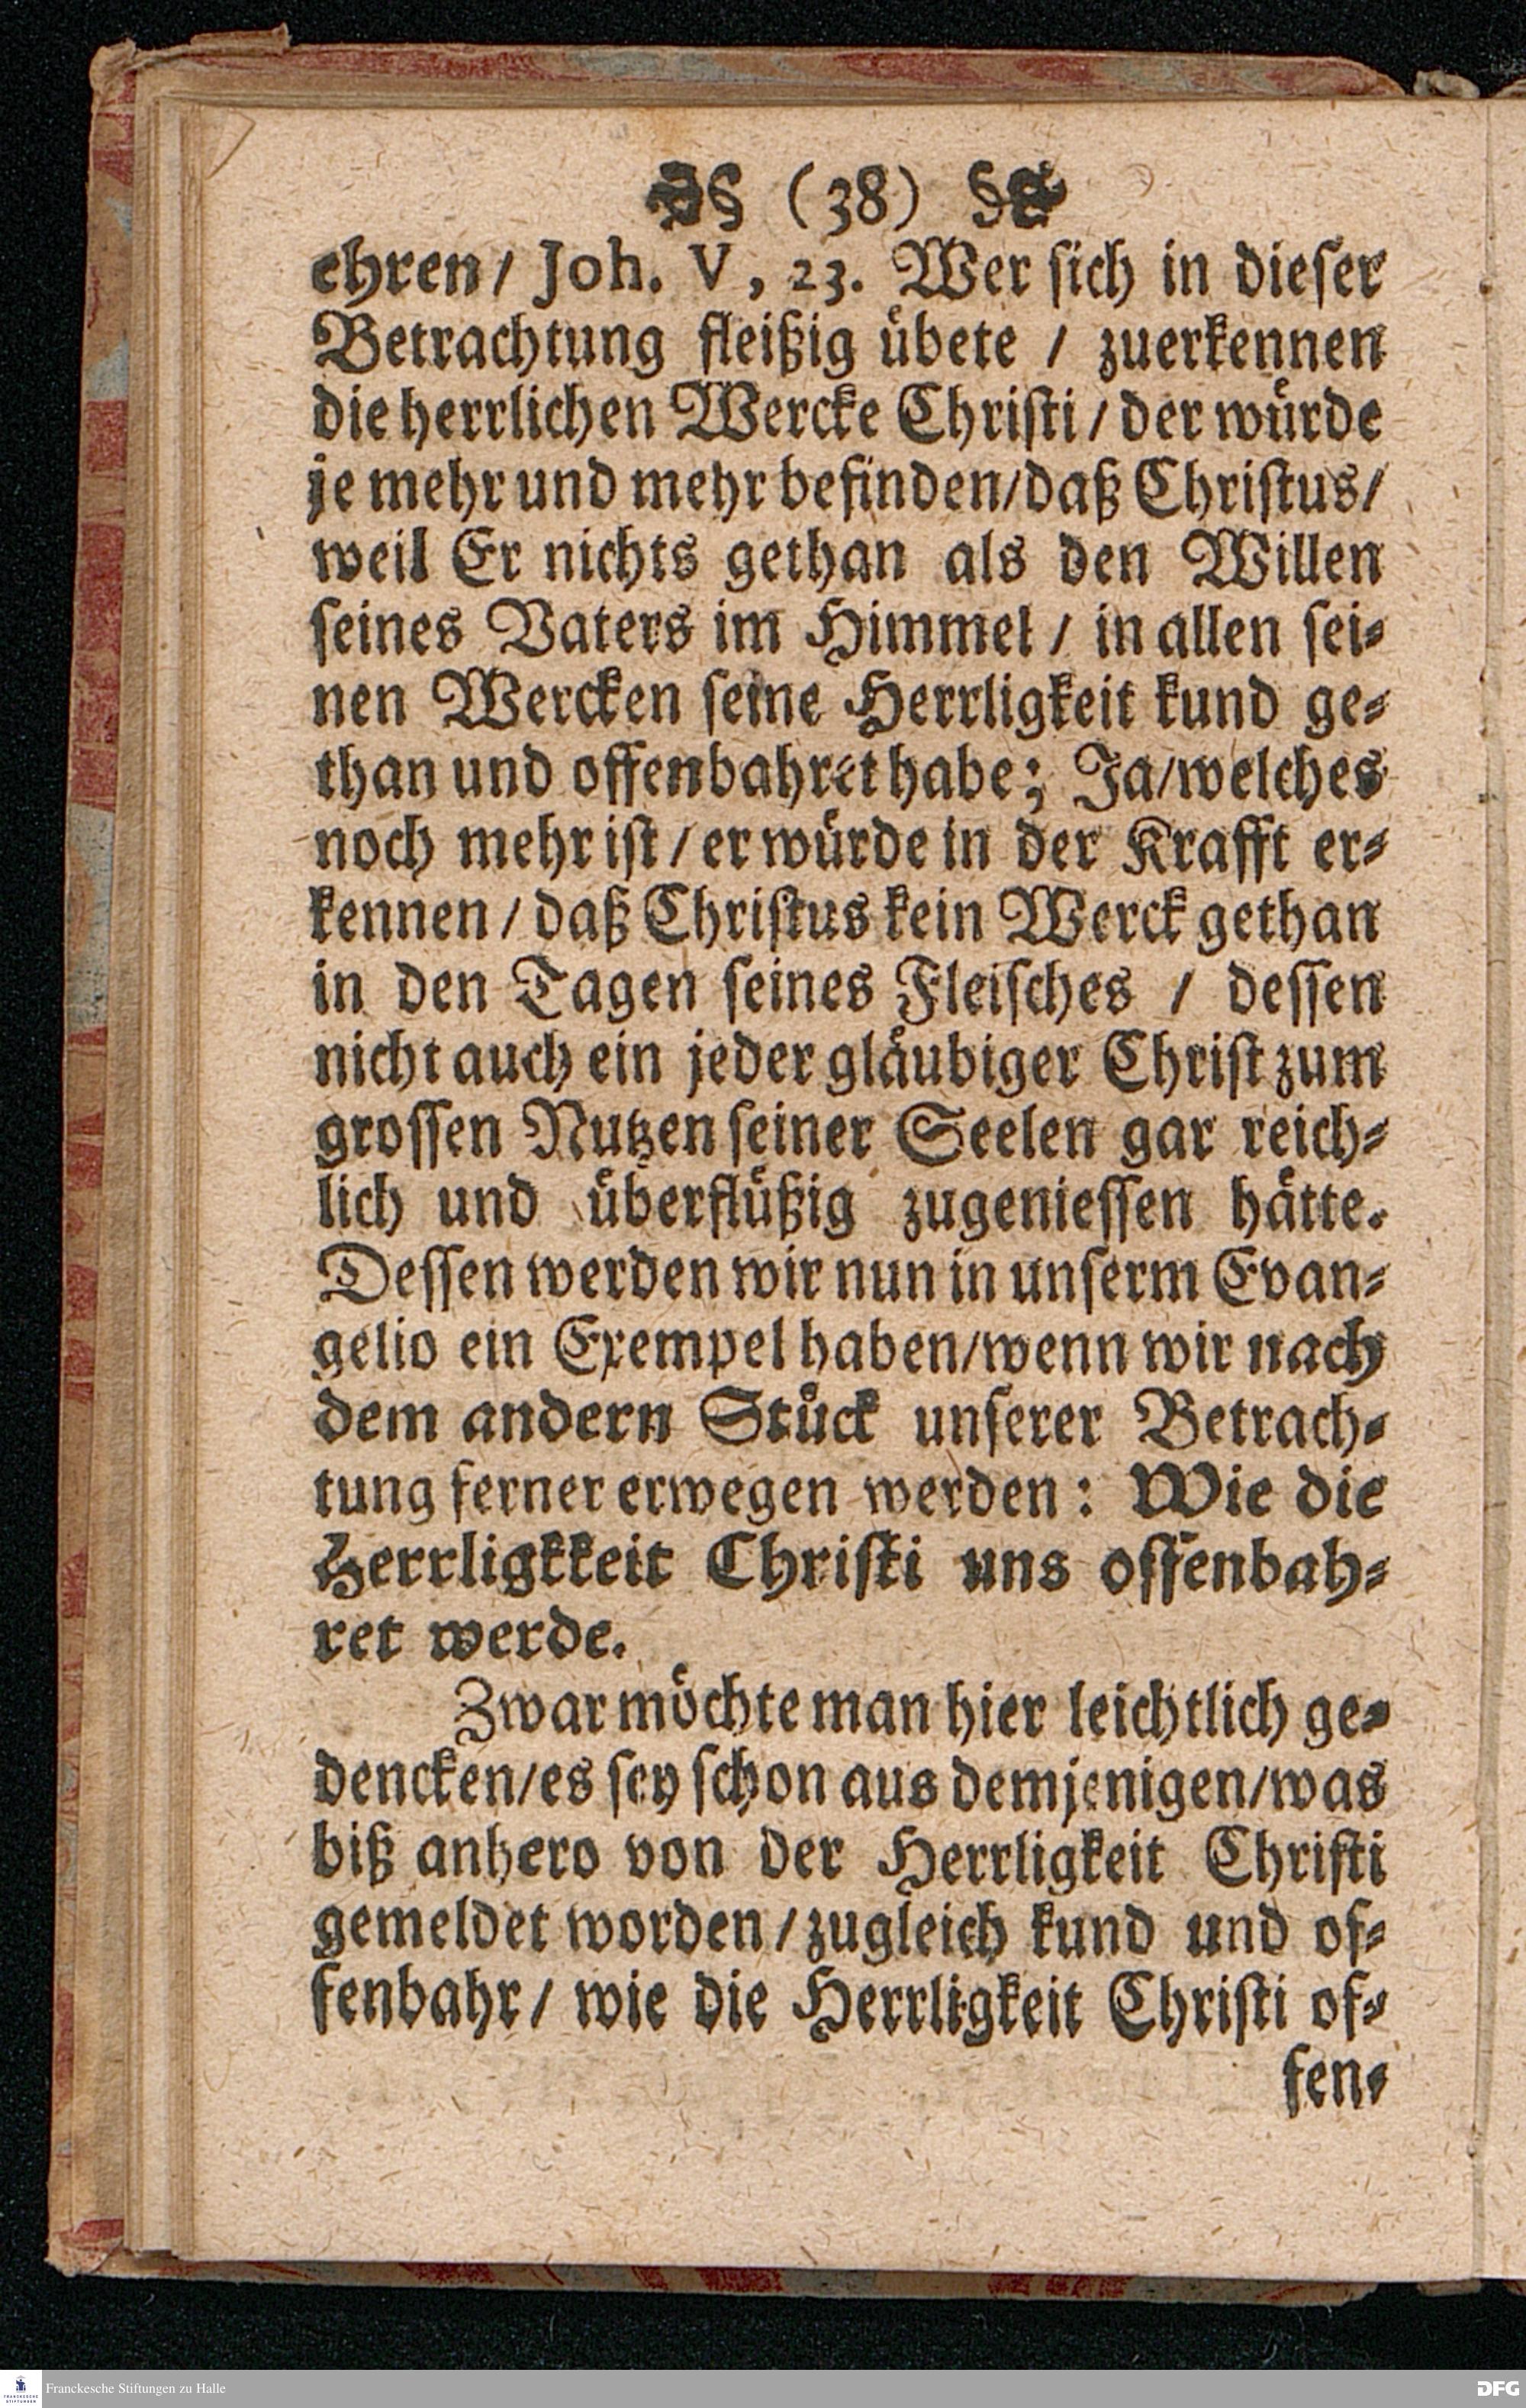 § (38) §
ehren/ Joh. V, 23. Wer sich in dieser
Betrachtung fleißig übete / zuerkennen
die herrlichen Wercke Christi / der würde
je mehr und mehr befinden/daß Christus/
weil Er nichts gethan als den Willen
seines Vaters im Himmel / in allen sei-
nen Wercken seine Herrligkeit kund ge-
than und offenbahret habe; Ja/welches
noch mehr ist / er würde in der Krafft er-
kennen / daß Christus kein Werck gethan
in den Tagen seines Fleisches / dessen
nicht auch ein jeder gläubiger Christ zum
grossen Nutzen seiner Seelen gar reich-
lich und überflüßig zugeniessen hätte.
Dessen werden wir nun in unserm Evan-
gelio ein Exempel haben/wenn wir nach
dem andern Stück unserer Betrach-
tung ferner erwegen werden: Wie die
Herrligkkeit Christi uns offenbah-
ret werde.
Zwar möchte man hier leichtlich ge-
dencken/es sey schon aus demjenigen/was
biß anhero von der Herrligkeit Christi
gemeldet worden / zugleich kund und of-
fenbahr / wie die Herrligkeit Christi of-
fen-
Franckesche Stiftungen zu Halle
DFG